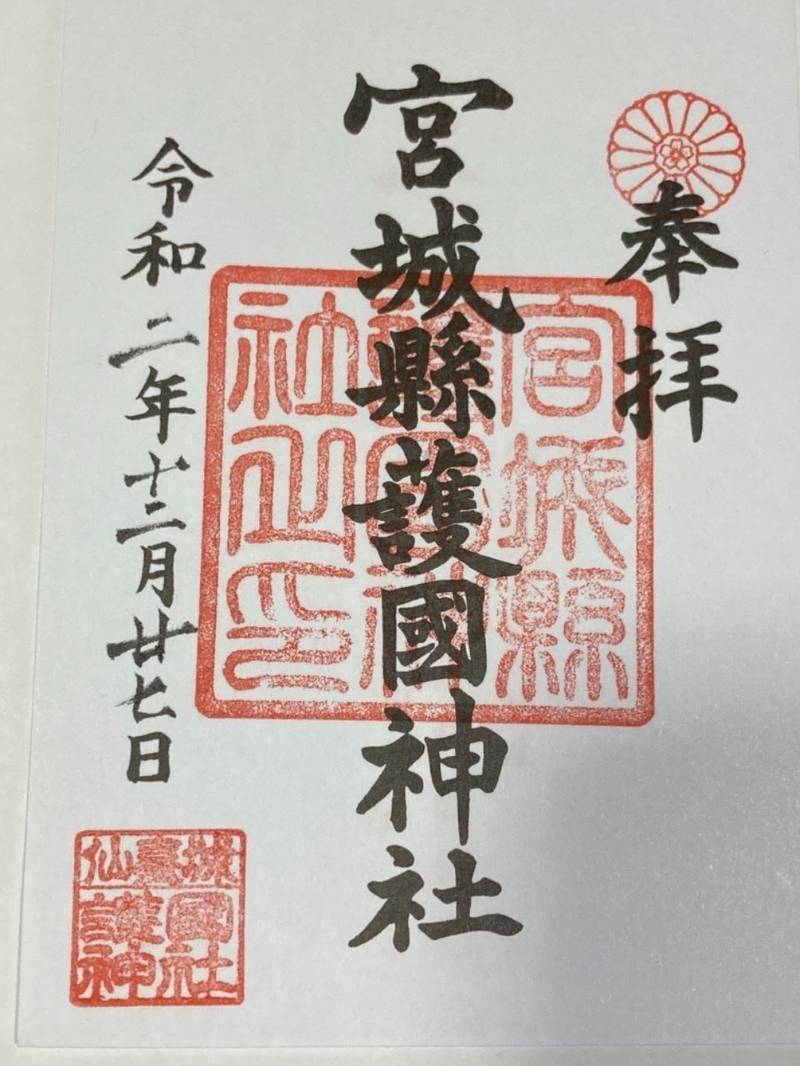 奉拝
宮城縣護國神社
令和二年十二月廿七日
宮城縣
護國神
社之印
仙臺城
護國
神社